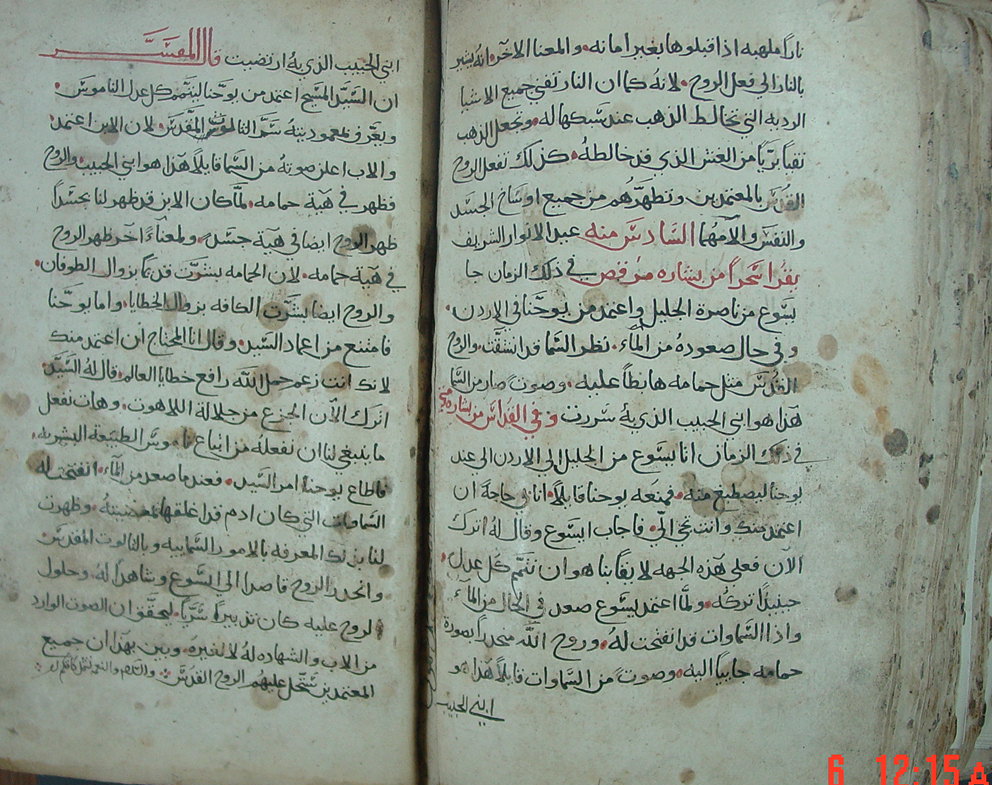 ناراً ملهبه اذا قبلوها بغير امانه والمعنا الاخر انه يشير
بالنار الي فعل الروح لانه كما ان النار تفني جميع الاشيا
الرديه التي تخالط الذهب عند سبكها له وتجعل الذهب
نقياً برياً من الغش الذي قد خالطه كذلك تفعل الروح
القدس بالمعتمدين وتطهرهم من جميع اوساخ الجسد
والنفس والامهما السادس منه عيد الانوار الشريف
يقرا سحراً من بشاره مرقص في ذلك الزمان جا
يسوع من ناصرة الجليل واعتمد من يوحنا في الاردن
وفي حال صعوده من الماء نظر السما قد انشقت والروح
القدس مثل حمامه هابطاً عليه وصوت صار من السما
هذا هو ابني الحبيب الذي به سررت وفي القداس من بشاره متي
في ذلك الزمان اتا يسوع من الجليل الي الاردن الي عند
يوحنا ليصطبغ منه فمنعه يوحنا قايلاً انا في حاجة ان
اعتمد منك وانت تجي الي فاجاب ايسوع وقال له اترك
الآن فعلي هذه الجهه لايقاً بنا هو ان نتمم كل عدل
حينيذ تركه ولما اعتمد يسوع صعد في الحال من الماء
واذا السماوات قد انفتحت له وروح الله منحدراً بصورة
حمامه جايياً اليه وصوت من السماوات قايلاً هذا هو
ابني الحبيب
ابني الحبيب الذي به ارتضيت قال المفسر
ان السيد المسيح اعتمد من يوحنا ليتمم كل عدل الناموس
ويعرف بمعموديته سر الثالوث المقدس لان الابن اعتمد
والاب اعلن صوته من السما قايلاً هذا هو ابني الحبيب والروح
فظهر في هية حمامه لما كان الابن قد ظهر لنا بجسداً
ظهر الروح ايضا في هية جسد ولمعناً آخر ظهر الروح
في هية حمامه لان الحمامه بشرت قديماً بزوال الطوفان
والروح ايضا بشرت الكافه بزوال الخطايا واما يوحنا
فامتنع من اعماد السيد وقال انا المحتاج ان اعتمد منك
لانك انت زعم حمل الله رافع خطايا العالم قال له السيد
اترك الآن الجزع من جلالة اللاهوت وهات نفعل
ما ينبغي لنا ان نفعله من اتباع ناموس الطبيعه البشريه
فاطاع يوحنا امر السيد فعندما صعد من الماء انفتحت له
السماوات التي كان ادم قد اغلقها بمعصيته وظهرت
لنا بذلك المعرفه بالامور السمايه وبالثالوث المقدس
وانحدر الروح قاصدا الي ايسوع وشاهداً له وحلول
الروح عليه كان تدبيراً سرياً ليحقق ان الصوت الوارد
من الاب والشهاده له لا لغيره وبين بهذا ان جميع
المعتمدين تحل عليهم الروح القدس